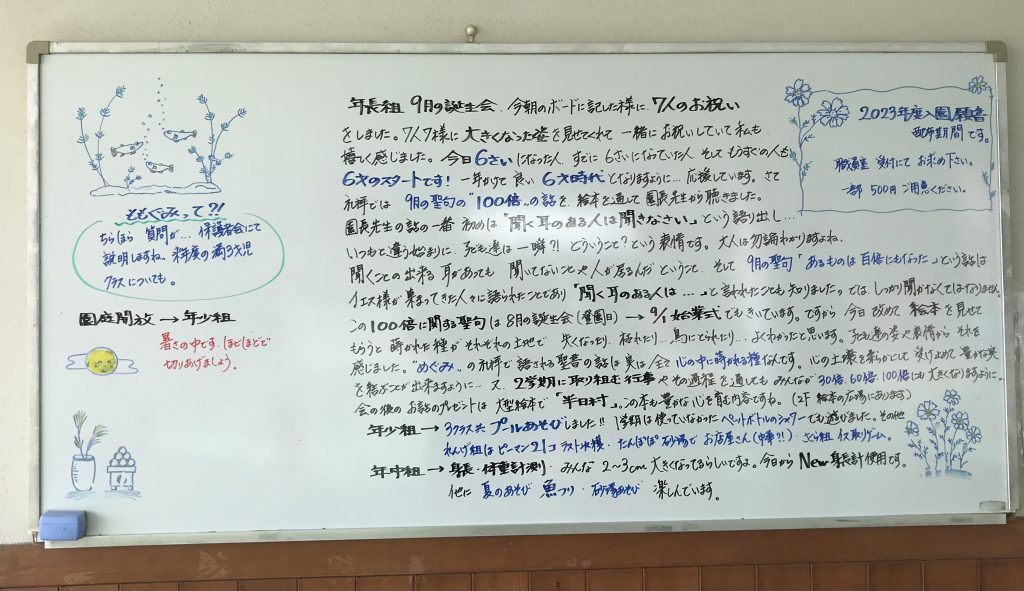 年長組 9月の誕生会、今朝のボードに記した様に、7人のお祝い
をしました。7人7様に大きくなった姿を見せてくれて 一緒にお祝いしていて私も
嬉しく感じました。今日6さいになった人、すでに6さいになっていた人 そしてもうすぐの人も
6才のスタートです！一年かけて良い 6才時代となりますように…応援しています。さて
礼拝では 9月の聖句の"100倍"の話を 絵本を通して園長先生から聴きました。
園長先生の話の一番 初めは「聞く耳のある人は聞きなさい」という語り出し…
いつもと違う始まりに、子ども達は一瞬?! どういうこと?という表情です。大人は勿論わかりますよね、
聞くことの出来る耳があっても 聞いてないことや人が居るんだということ、そして 9月の聖句「あるものは百倍にもなった」という話は
イエス様が集まってきた人々に語られたことであり「聞く耳のある人は…」と言われたことも知りました。では しっかり聞かなくてはなりません。
この100倍に関する聖句は8月の誕生会(夏園日) → 9/1 始業式でもきいています。ですから 今日 改めて 絵本を見せて
もらうと 蒔かれた種が それぞれの土地で 失くなったり、枯れたり…鳥にとられたり…よくわかったと思います。子ども達の姿や表情から それを
感じました。"めぐみ"の礼拝で 話される聖書の話は 実は 全て 心の中に蒔かれる種なんです。心の土壌を柔らかにして 受けとめて 豊かな実
を結ぶことが出来ますように… 又、2学期に取り組む行事やその過程を通しても みんなが 30倍、60倍、100倍にも大きくなりますように。
会の後のお話のプレゼントは 大型絵本で「半日村」。この本も豊かな心を育む内容ですね。(2F 絵本の広場にあります)
年少組 → 3クラス共 プールあそびしました!! 1学期は使っていなかった ペットボトルのシャワーでも遊びました。その他
れんげ組はピーマン21コ ラスト収穫・たんぽぽ 砂場で お店屋さん(中華?!)・さくら組 イス取りゲーム。
年中組 → 身長・体重計測・みんな 2〜3cm 大きくなってるらしいですよ。今日から New身長計 使用です。
他に 夏のあそび 魚つり・砂場あそび 楽しんでいます。
ももぐみって?!
ちらほら 質問が… 保護者会にて
説明しますね。来年度の満3才児
クラスについても。
園庭開放 → 年少組
暑さの中です、ほどほどで
切りあげましょう。
2023年度入園願書
配布期間です。
職員室 受付にて お求め下さい。
一部 500円 ご用意ください。